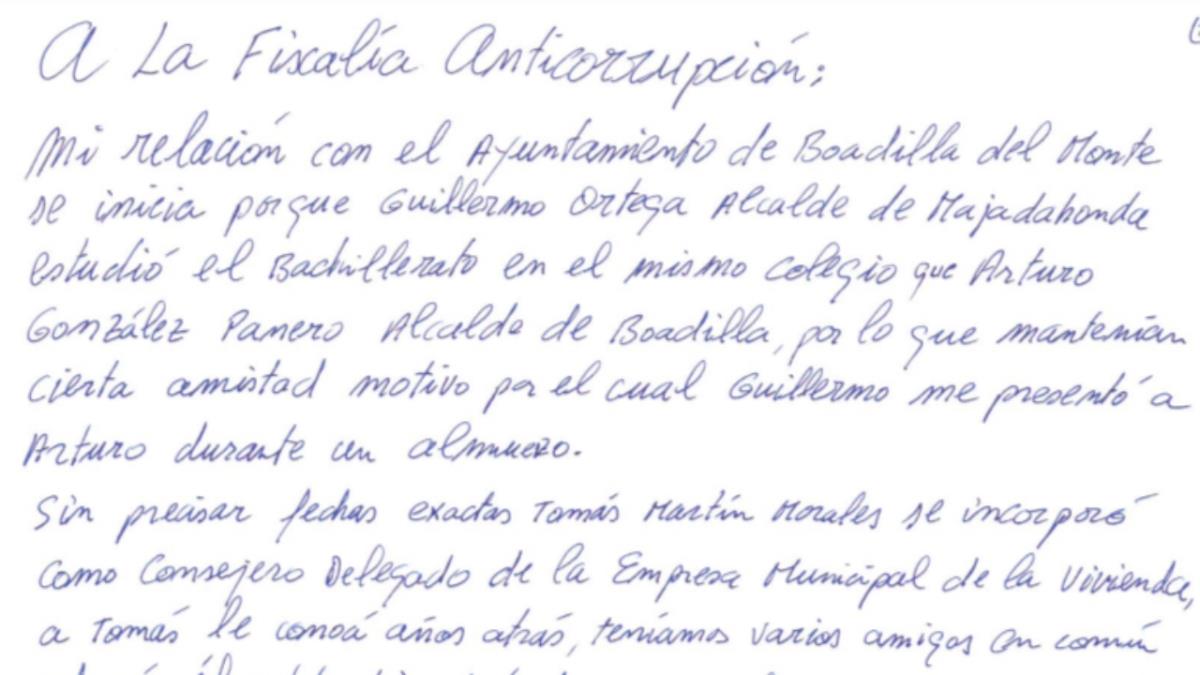 A La Fiscalía Anticorrupción:
Mi relación con el Ayuntamiento de Boadilla del Monte
se inicia porque Guillermo Ortega Alcalde de Majadahonda
estudió el Bachillerato en el mismo colegio que Arturo
González Panero Alcalde de Boadilla, por lo que mantenían
cierta amistad motivo por el cual Guillermo me presentó a
Arturo durante un almuerzo.
Sin precisar fechas exactas Tomás Martín Morales se incorporó
como Consejero Delegado de la Empresa Municipal de la Vivienda,
a Tomás le conocí años atrás, teníamos varios amigos en común